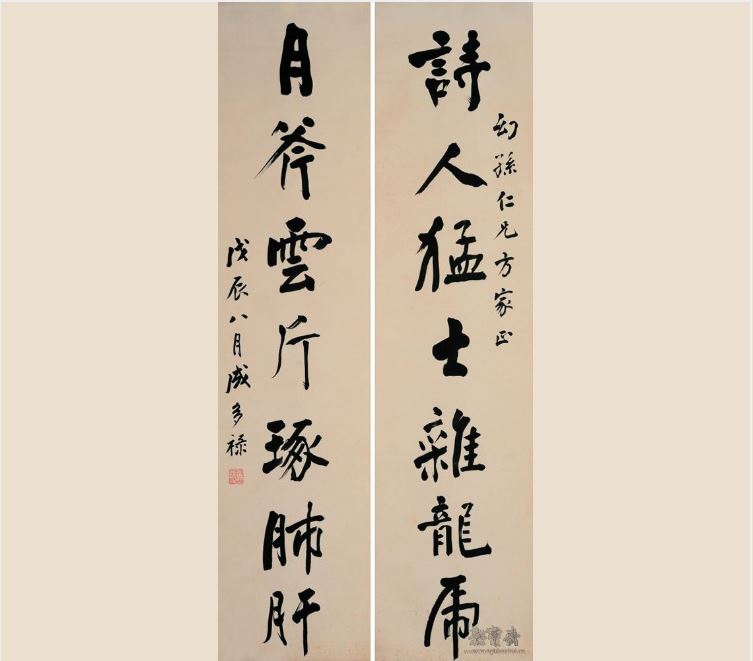 幻孫仁兄方家正
詩人猛士雜龍虎
月斧雲斤琢肺肝
戊辰八月成多祿